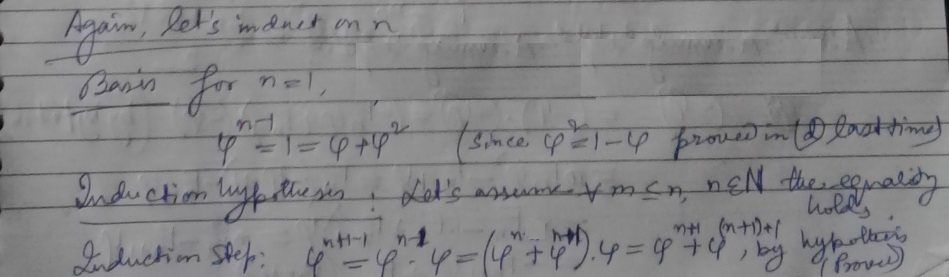 Again, let's induct on n
Basis for n=1,
φ^{n-1} = 1 = φ + φ^2 (since φ^2 = 1 - φ proved in (d) last time)
Induction hypothesis: Let's assume ∀ m ≤ n, n ∈ N the equality
holds
Induction step: φ^{n+1-1} = φ^{n-1} · φ = (φ^n + φ^{n+1}) · φ = φ^{n+1} + φ^{(n+1)+1}, by hypothesis
(Proved)